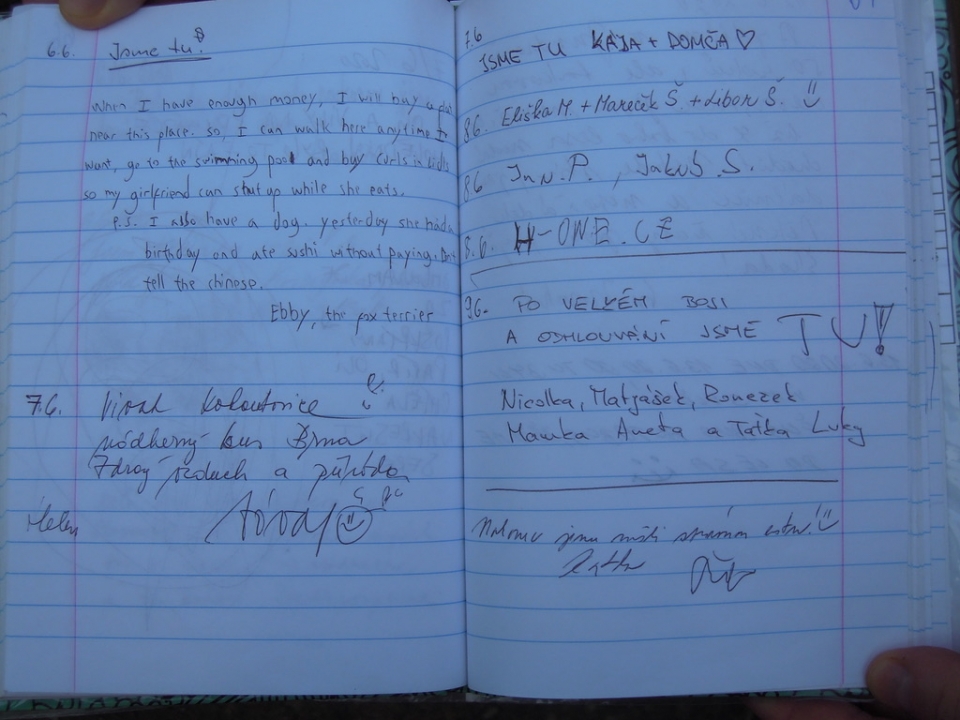 6.6. Jsme tu!
When I have enough money, I will buy a flat
near this place. so, I can walk here anytime I
want, go to the swimming pool and buy curls
so my girlfriend can shut up while she eats.
P.S. I also have a dog. yesterday she had a
birthday and ate sushi without paying. Don't
tell the chinese.
Ebby, the fox terrier
7.6.
nádherný kus Brna
Zdravý vzduch a příroda
7.6
JSME TU KÁJA + DOMČA ♡
8.6. Eliška M. + Mareček Š. + Libor Š.
8.6 Jan. P., Jakub. S.
8.6. H-ONE.CZ
9.6. PO VELKÉM BOJI
A ODMLOUVÁNÍ JSME TU!
Nicolka, Matyášek, Ronezek
Mamka Aneta a Taťka Luky